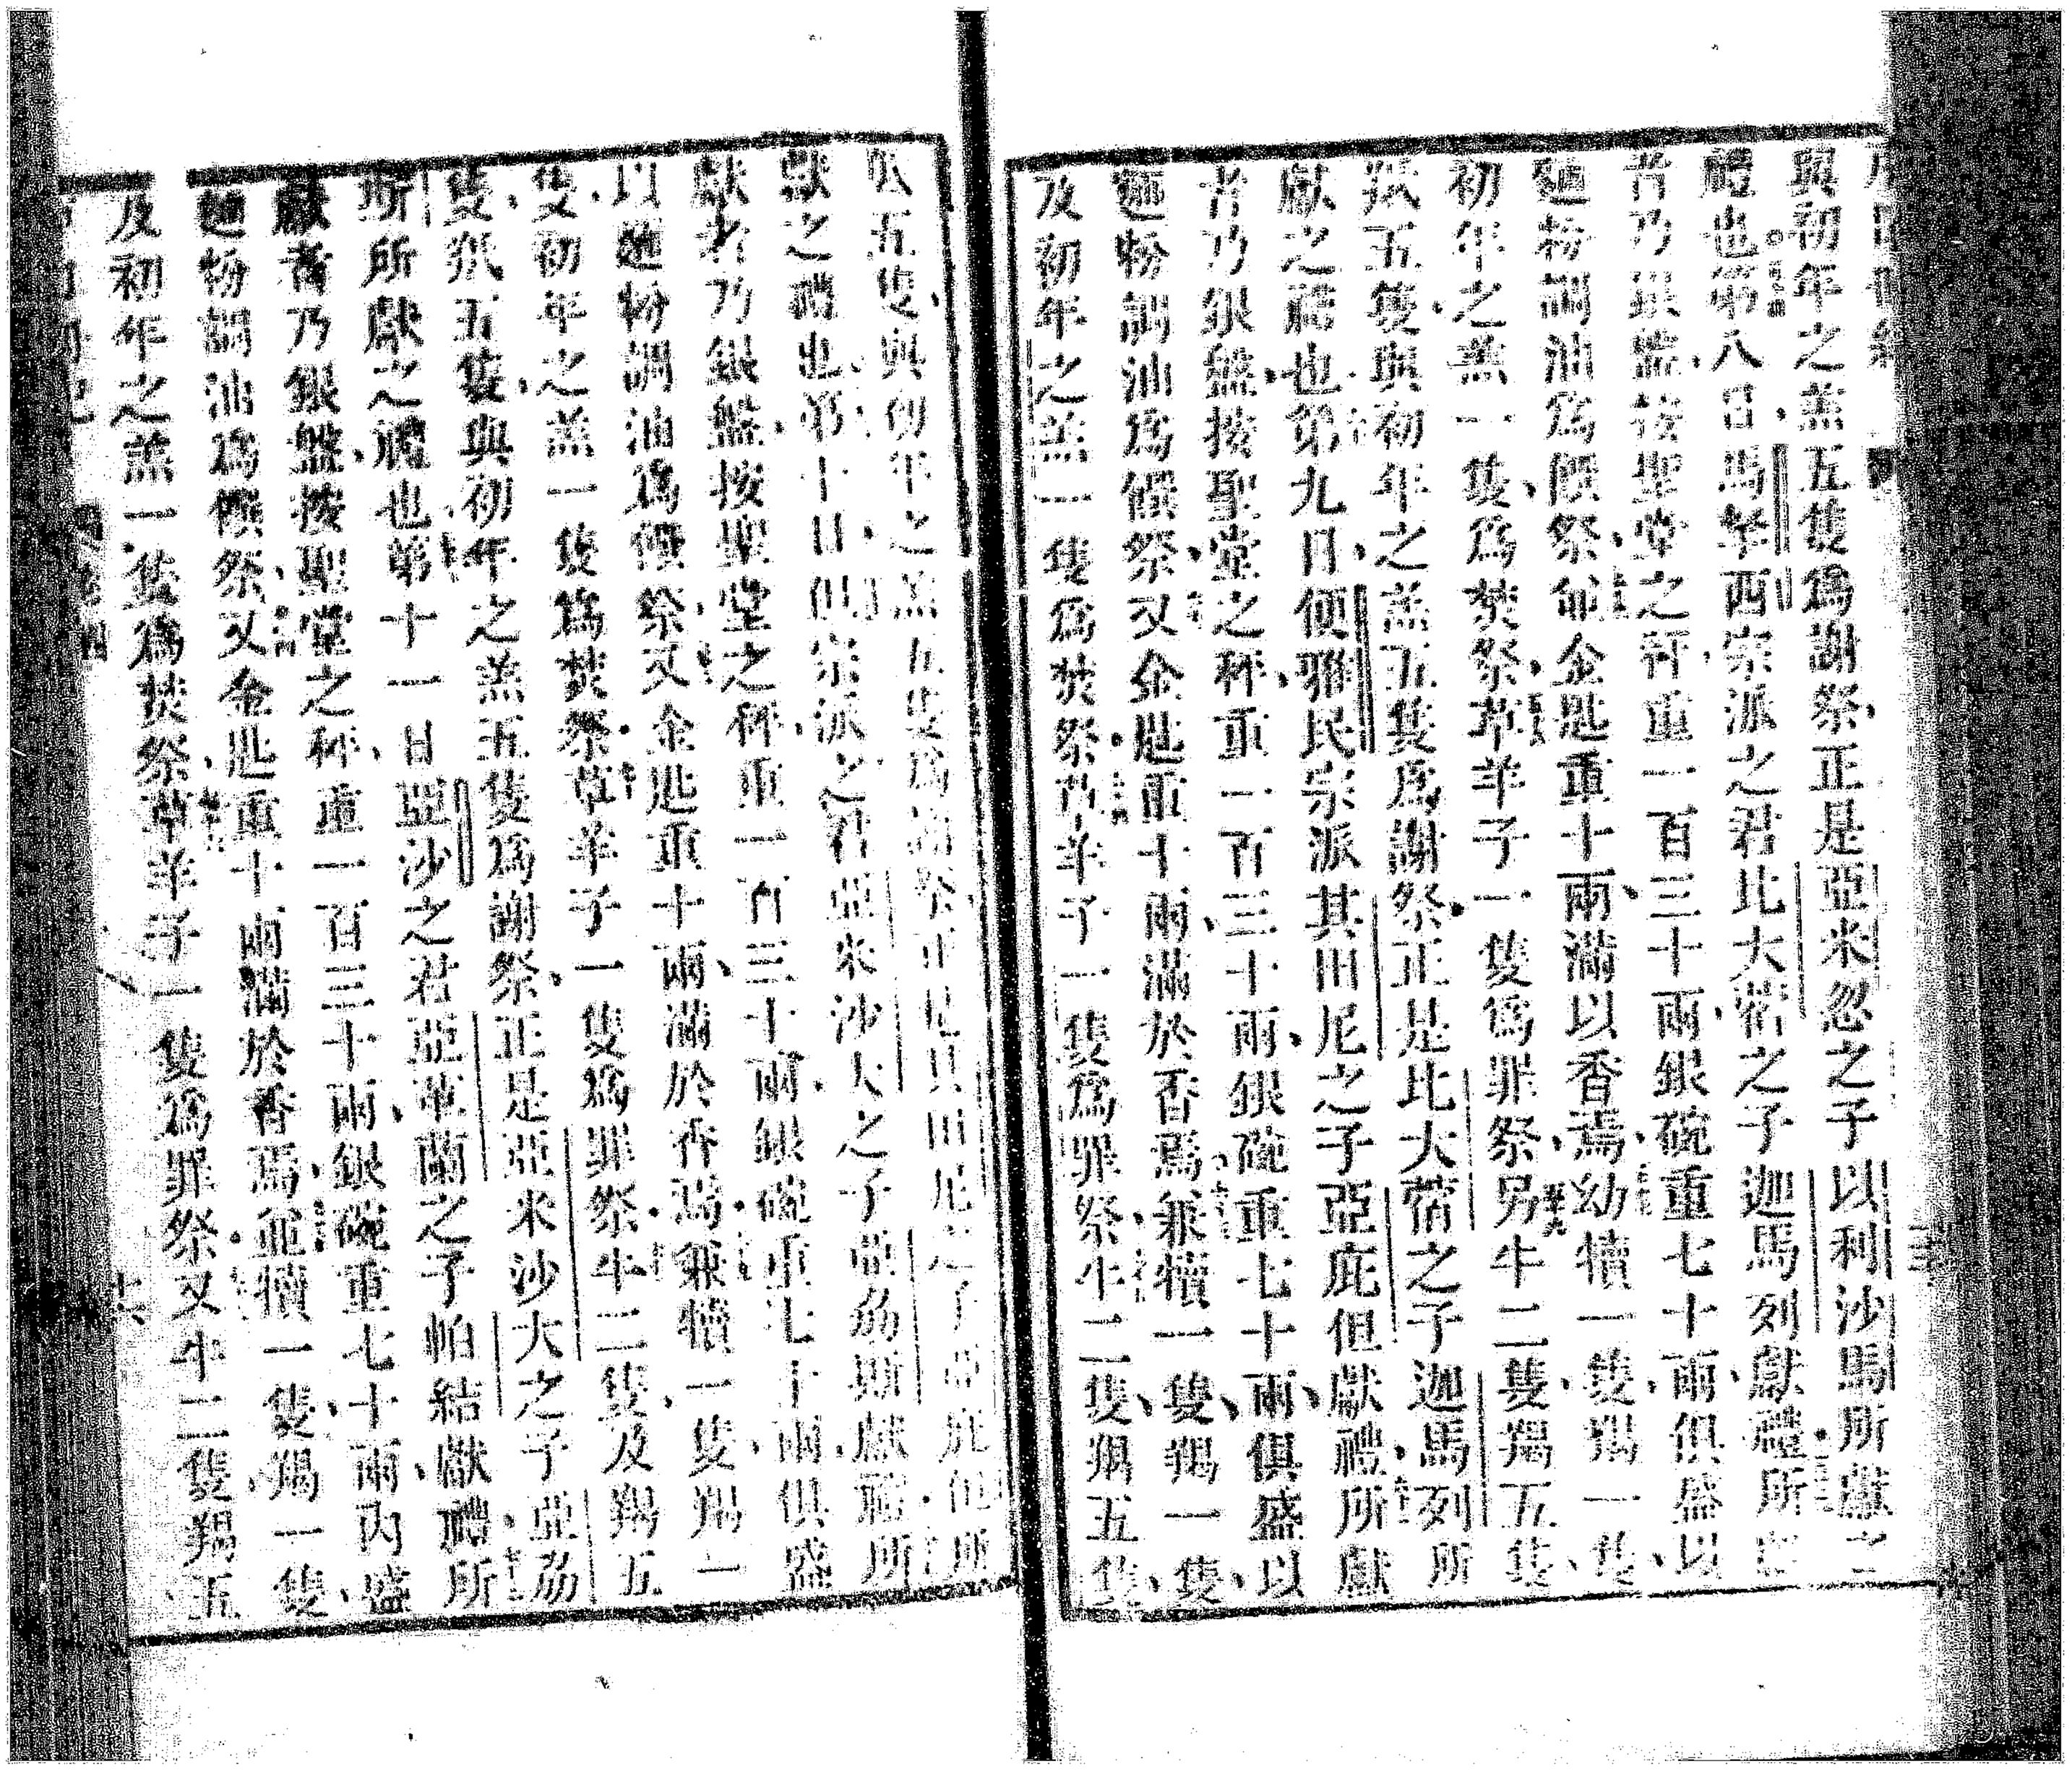 與初年之羔五隻爲謝祭、正是亞米忽之子以利沙馬所獻之
禮也。第八日、馬拿西宗派之君比大蓿之子迦馬列獻禮、所
者乃銀盤、按聖堂之秤、重一百三十兩、銀碗重七十兩、俱盛以
麵粉調油爲饌祭、金匙重十兩、滿以香焉、幼犢一隻、羯一隻、
初年之羔一隻、爲焚祭、草羊子一隻爲罪祭、另牛二隻、羯五隻、
羝五隻、與初年之羔五隻爲謝祭、正是比大蓿之子迦馬列所
獻之禮也。第九日、便雅民宗派其田尼之子亞庇但獻禮、所獻
者乃銀盤、按聖堂之秤、重一百三十兩、銀碗重七十兩、俱盛以
麵粉調油爲饌祭、又金匙重十兩、滿於香焉、兼犢一隻、羯一隻、
及初年之羔一隻爲焚祭、草羊子一隻爲罪祭、牛二隻、羯五隻、
羝五隻、與初年之羔五隻爲謝祭、正是其田尼之子亞庇但所
獻之禮也、第十日、但宗派之君亞米沙大之子亞蒭斯獻禮、所
獻者乃銀盤、按聖堂之秤、重一百三十兩、銀碗重七十兩、俱盛
以麵粉調油爲饌祭、又金匙重十兩、滿於香焉、兼犢一隻、羯一
隻、初年之羔一隻爲焚祭、草羊子一隻爲罪祭、牛二隻、及羯五
隻、羝五隻、與初年之羔五隻爲謝祭、正是亞米沙大之子亞蒭
斯所獻之禮也、第十一日亞沙之君亞革蘭之子帕結獻禮、所
獻者乃銀盤、按聖堂之秤、重一百三十兩、銀碗重七十兩、內盛
麵粉調油爲饌祭、又金匙重十兩滿於香焉、並犢一隻、羯一隻、
及初年之羔一隻爲焚祭、草羊子一隻爲罪祭、又牛二隻、羯五